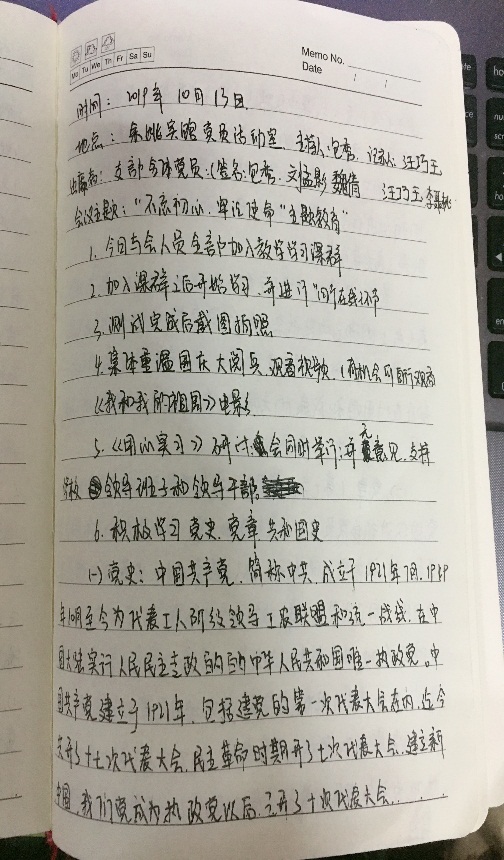 Memo No.
Mo Tu We Th Fr Sa Su
Date / /
时间：2019年10月13日
地点：余姚实验党员活动室 主持人：包秀 记录人：汪巧玉
出席者：支部全体党员：(签名：包秀 文 魏倩 汪巧玉 李
会议主题："不忘初心、牢记使命"主题教育"
1. 今日与会人员全部加入教学学习课群
2. 加入课群之后开始学习，并进行"回答在线环节
3. 测试完成后截图拍照
4. 集体重温国庆大阅兵，观看视频，(有机会可自行观看
《我和我的祖国》电影)
5. 研讨会同时举行；并无意见，支持
学校领导班子和领导干部。
6. 积极学习党史、党章 共和国史
(一) 党史：中国共产党，简称中共，成立于1921年7月，1949
年10月至今为代表工人阶级领导工农联盟和统一战线，在中
国大陆实行人民民主专政的的中华人民共和国唯一执政党。中
国共产党建立于1921年，包括建党的第一次代表大会在内，迄今
召开了十七次代表大会，民主革命时期开了七次代表大会，建立新
中国，我们党成为执政党以后，召开了十次代表大会......